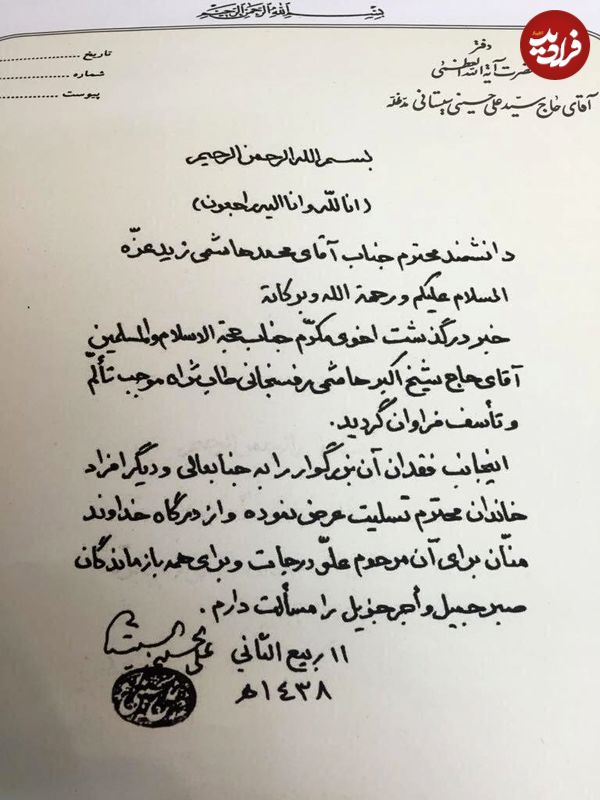 بسم الله الرحمن الرحیم
دفتر
حضرت آیة الله العظمی
آقای حاج سید علی حسینی سیستانی مدظله
تاریخ
شماره
پیوست
فرادید
بسم الله الرحمن الرحیم
(انا لله وانا الیه راجعون)
دانشمند محترم جناب آقای محمد هاشمی زید عزّه
السلام علیکم ورحمة الله وبرکاته
خبر درگذشت اخوی مکرّم جناب حجة الاسلام والمسلمین
آقای حاج شیخ اکبر هاشمی رفسنجانی طاب ثراه موجب تألّم
و تأسف فراوان گردید.
اینجانب فقدان آن بزرگوار را به جنابعالی و دیگر افراد
خاندان محترم تسلیت عرض نموده و از درگاه خداوند
منّان برای آن مرحوم علوّ درجات و برای همه بازماندگان
صبر جمیل و أجر جزیل را مسألت دارم.
۱۱ ربیع الثانی
۱۴۳۸ هـ
علی الحسینی السیستانی